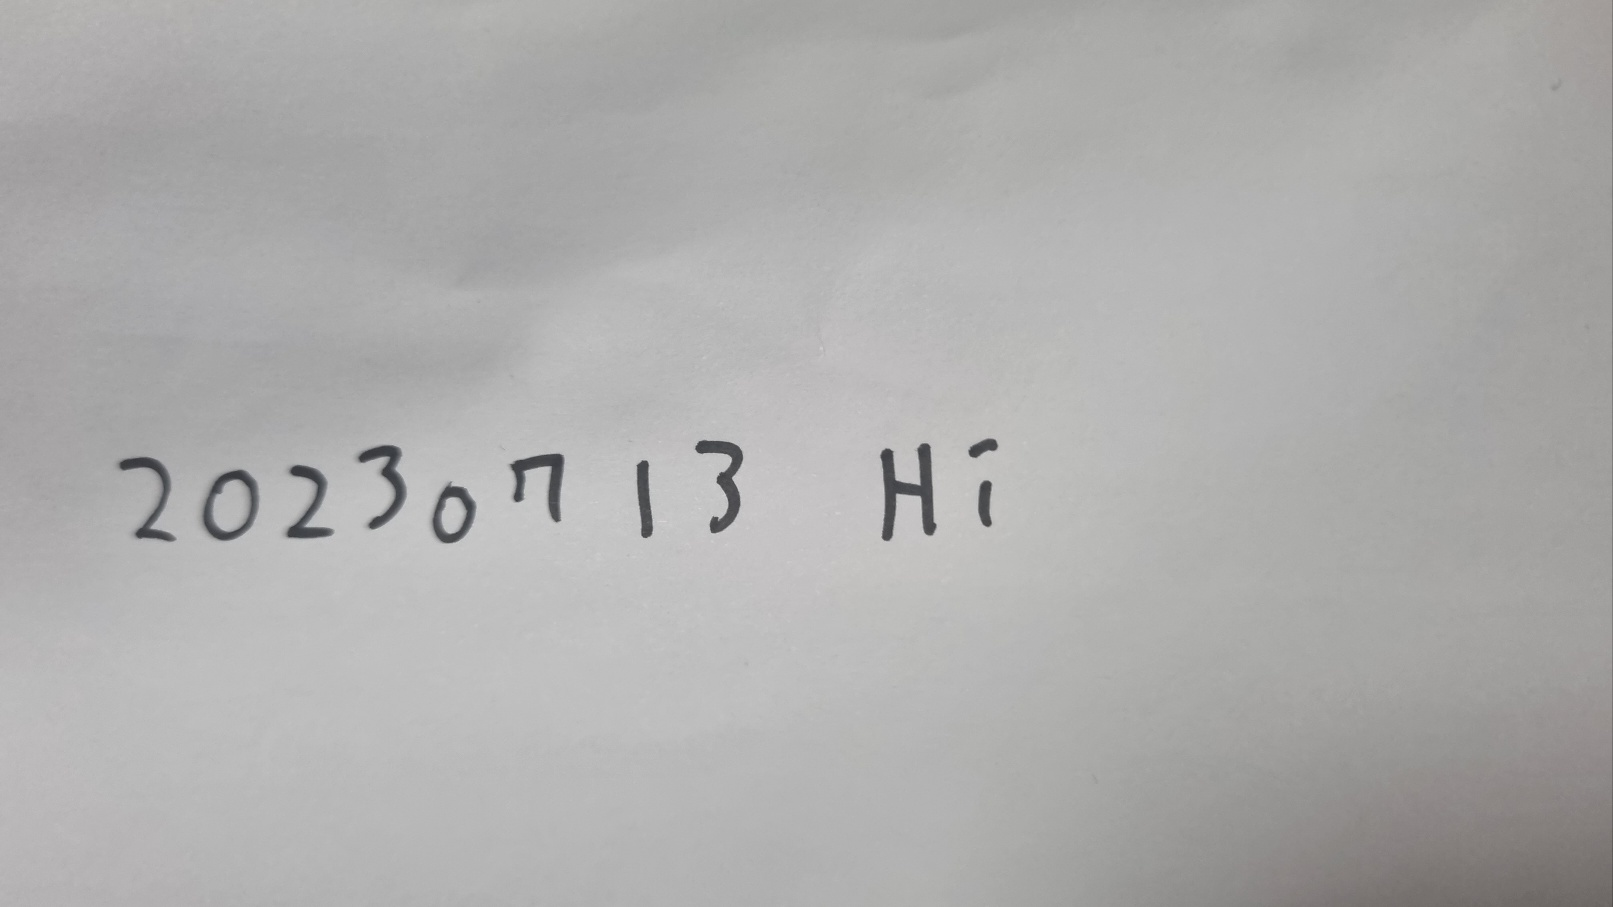 20230713 Hi